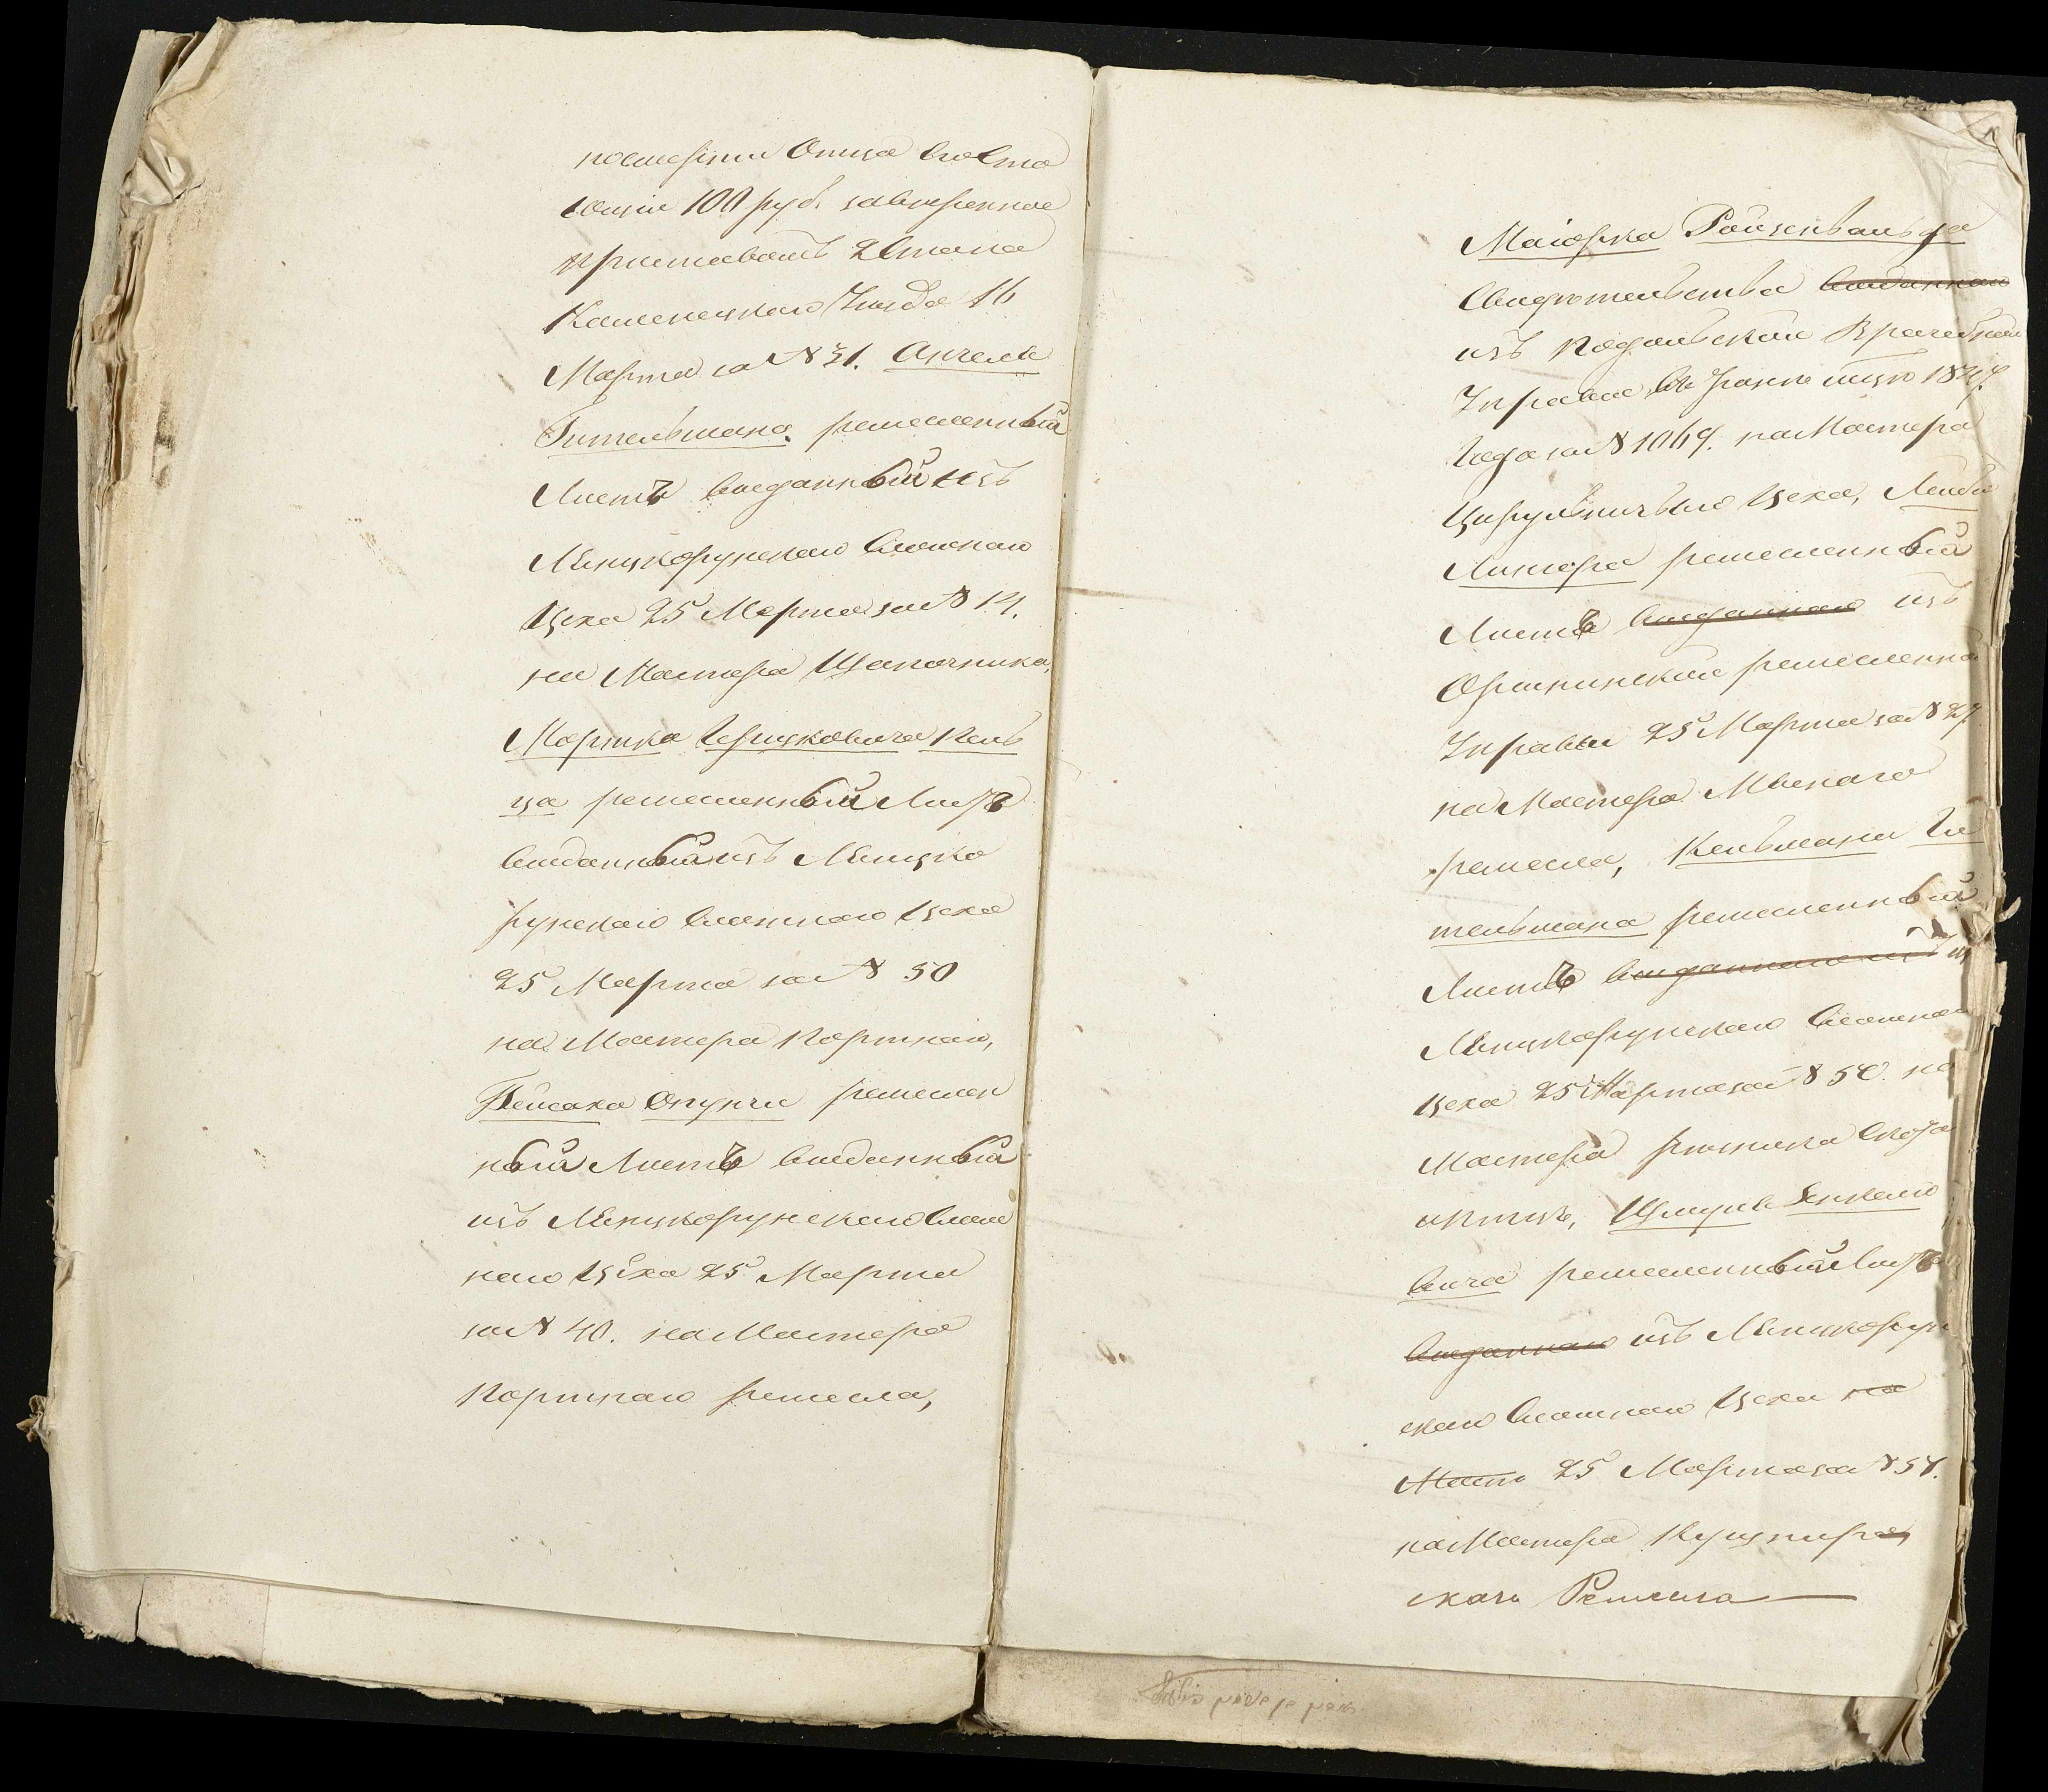 посмерти Отца состо
ющiи 100 руб. заверенное
приставомъ 2 Стана
Каменецкаго Уезда 16
Марта за № 31. Анчеля
Гительмана. ремесленный
Листъ выданный изъ
Ленцкорунскаго Сложнаго
Цеха 25 Марта за № 14.
на Мастера Шапочника,
Мортка Герцковича Кель
ца ремесленный Листъ
выданный изъ Лянцко
рунскаго Сложнаго Цеха
25 Марта за № 50
на Мастера Портнаго,
Пейсаха Опунчи ремеслен
ный Листъ выданный
изъ Лянцкорунскаго Слож
наго Цеха 25 Марта
за № 40. на Мастера
Портнаго ремесла,
Маiорка Ройзенвальда
Свидетельства выданнаго
изъ Подольской Врачебной
Управы въ месяце 1847
года за № 1069. на Мастера
Цырульничьяго Цеха, Лейби
Линтера ремесленный
Листъ выданнаго изъ
Орининской ремесленной
Управы 25 Марта за № 27
на Мастера Мяснаго
ремесла, Кельмана Ги
тельмана ремесленный
Листъ выданнаго изъ
Лянцкорунскаго Сложнаго
цеха 25 Марта за № 50. на
Мастера резника скота
и птицъ, Шмуля Янкело
вича ремесленный Листъ
выданнаго изъ Лянцкорун
скаго Сложнаго Цеха на
25 Марта за № 57.
на Мастера Кушнира
скаго Ремесла